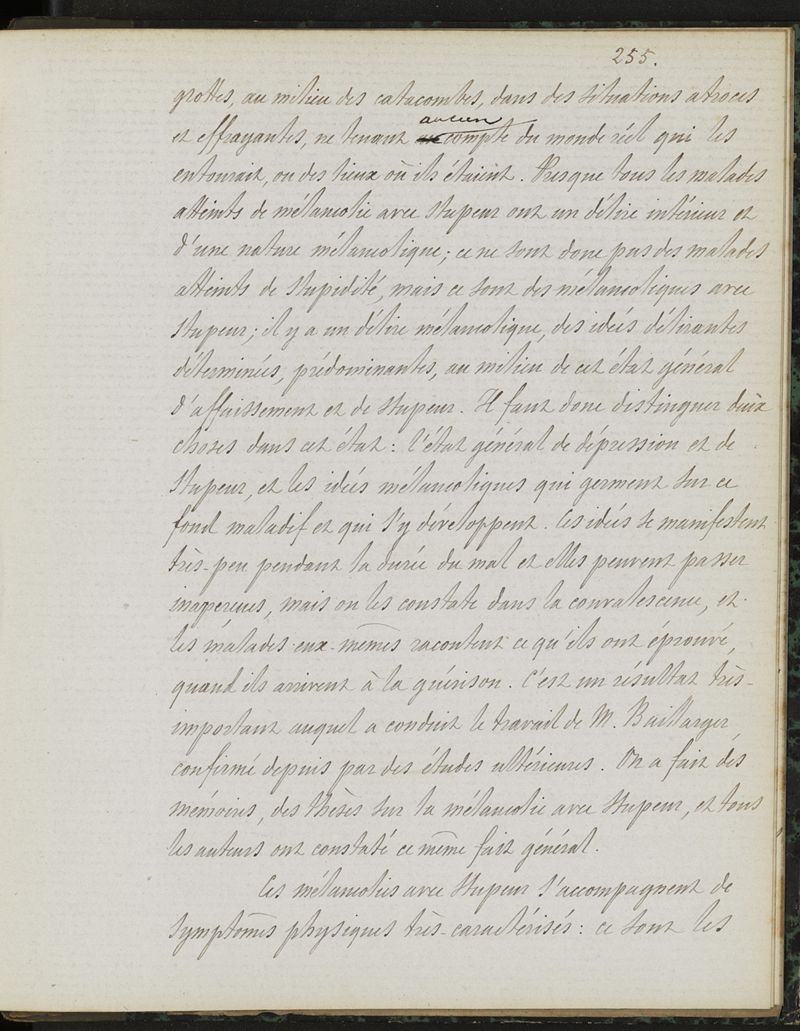 255.
grottes, au milieu des catacombes, dans des situations atroces
aucun
et effrayantes, ne tenant compte du monde réel qui les
entourait, ou des lieux où ils étaient. Presque tous les malades
atteints de mélancolie avec stupeur ont un délire intérieur et
d'une nature mélancolique; ce ne sont donc pas des malades
atteints de stupidité, mais ce sont des mélancoliques avec
stupeur; il y a un délire mélancolique, des idées délirantes
déterminées, prédominantes, au milieu de cet état général
d'affaissement et de stupeur. Il faut donc distinguer deux
choses dans cet état: l'état général de dépression et de
stupeur, et les idées mélancoliques qui germent sur ce
fond maladif et qui s'y développent. Ces idées se manifestent
très-peu pendant la durée du mal et elles peuvent passer
inaperçues, mais on les constate dans la convalescence, et
les malades eux-mêmes racontent ce qu'ils ont éprouvé,
quand ils arrivent à la guérison. C'est un résultat très-
important auquel a conduit le travail de M. Baillarger,
confirmé depuis par des études ultérieures. On a fait des
mémoires, des thèses sur la mélancolie avec stupeur, et tous
les auteurs ont constaté ce même fait général.
Ces mélancolies avec stupeur s'accompagnent de
symptômes physiques très-caractérisés: ce sont les